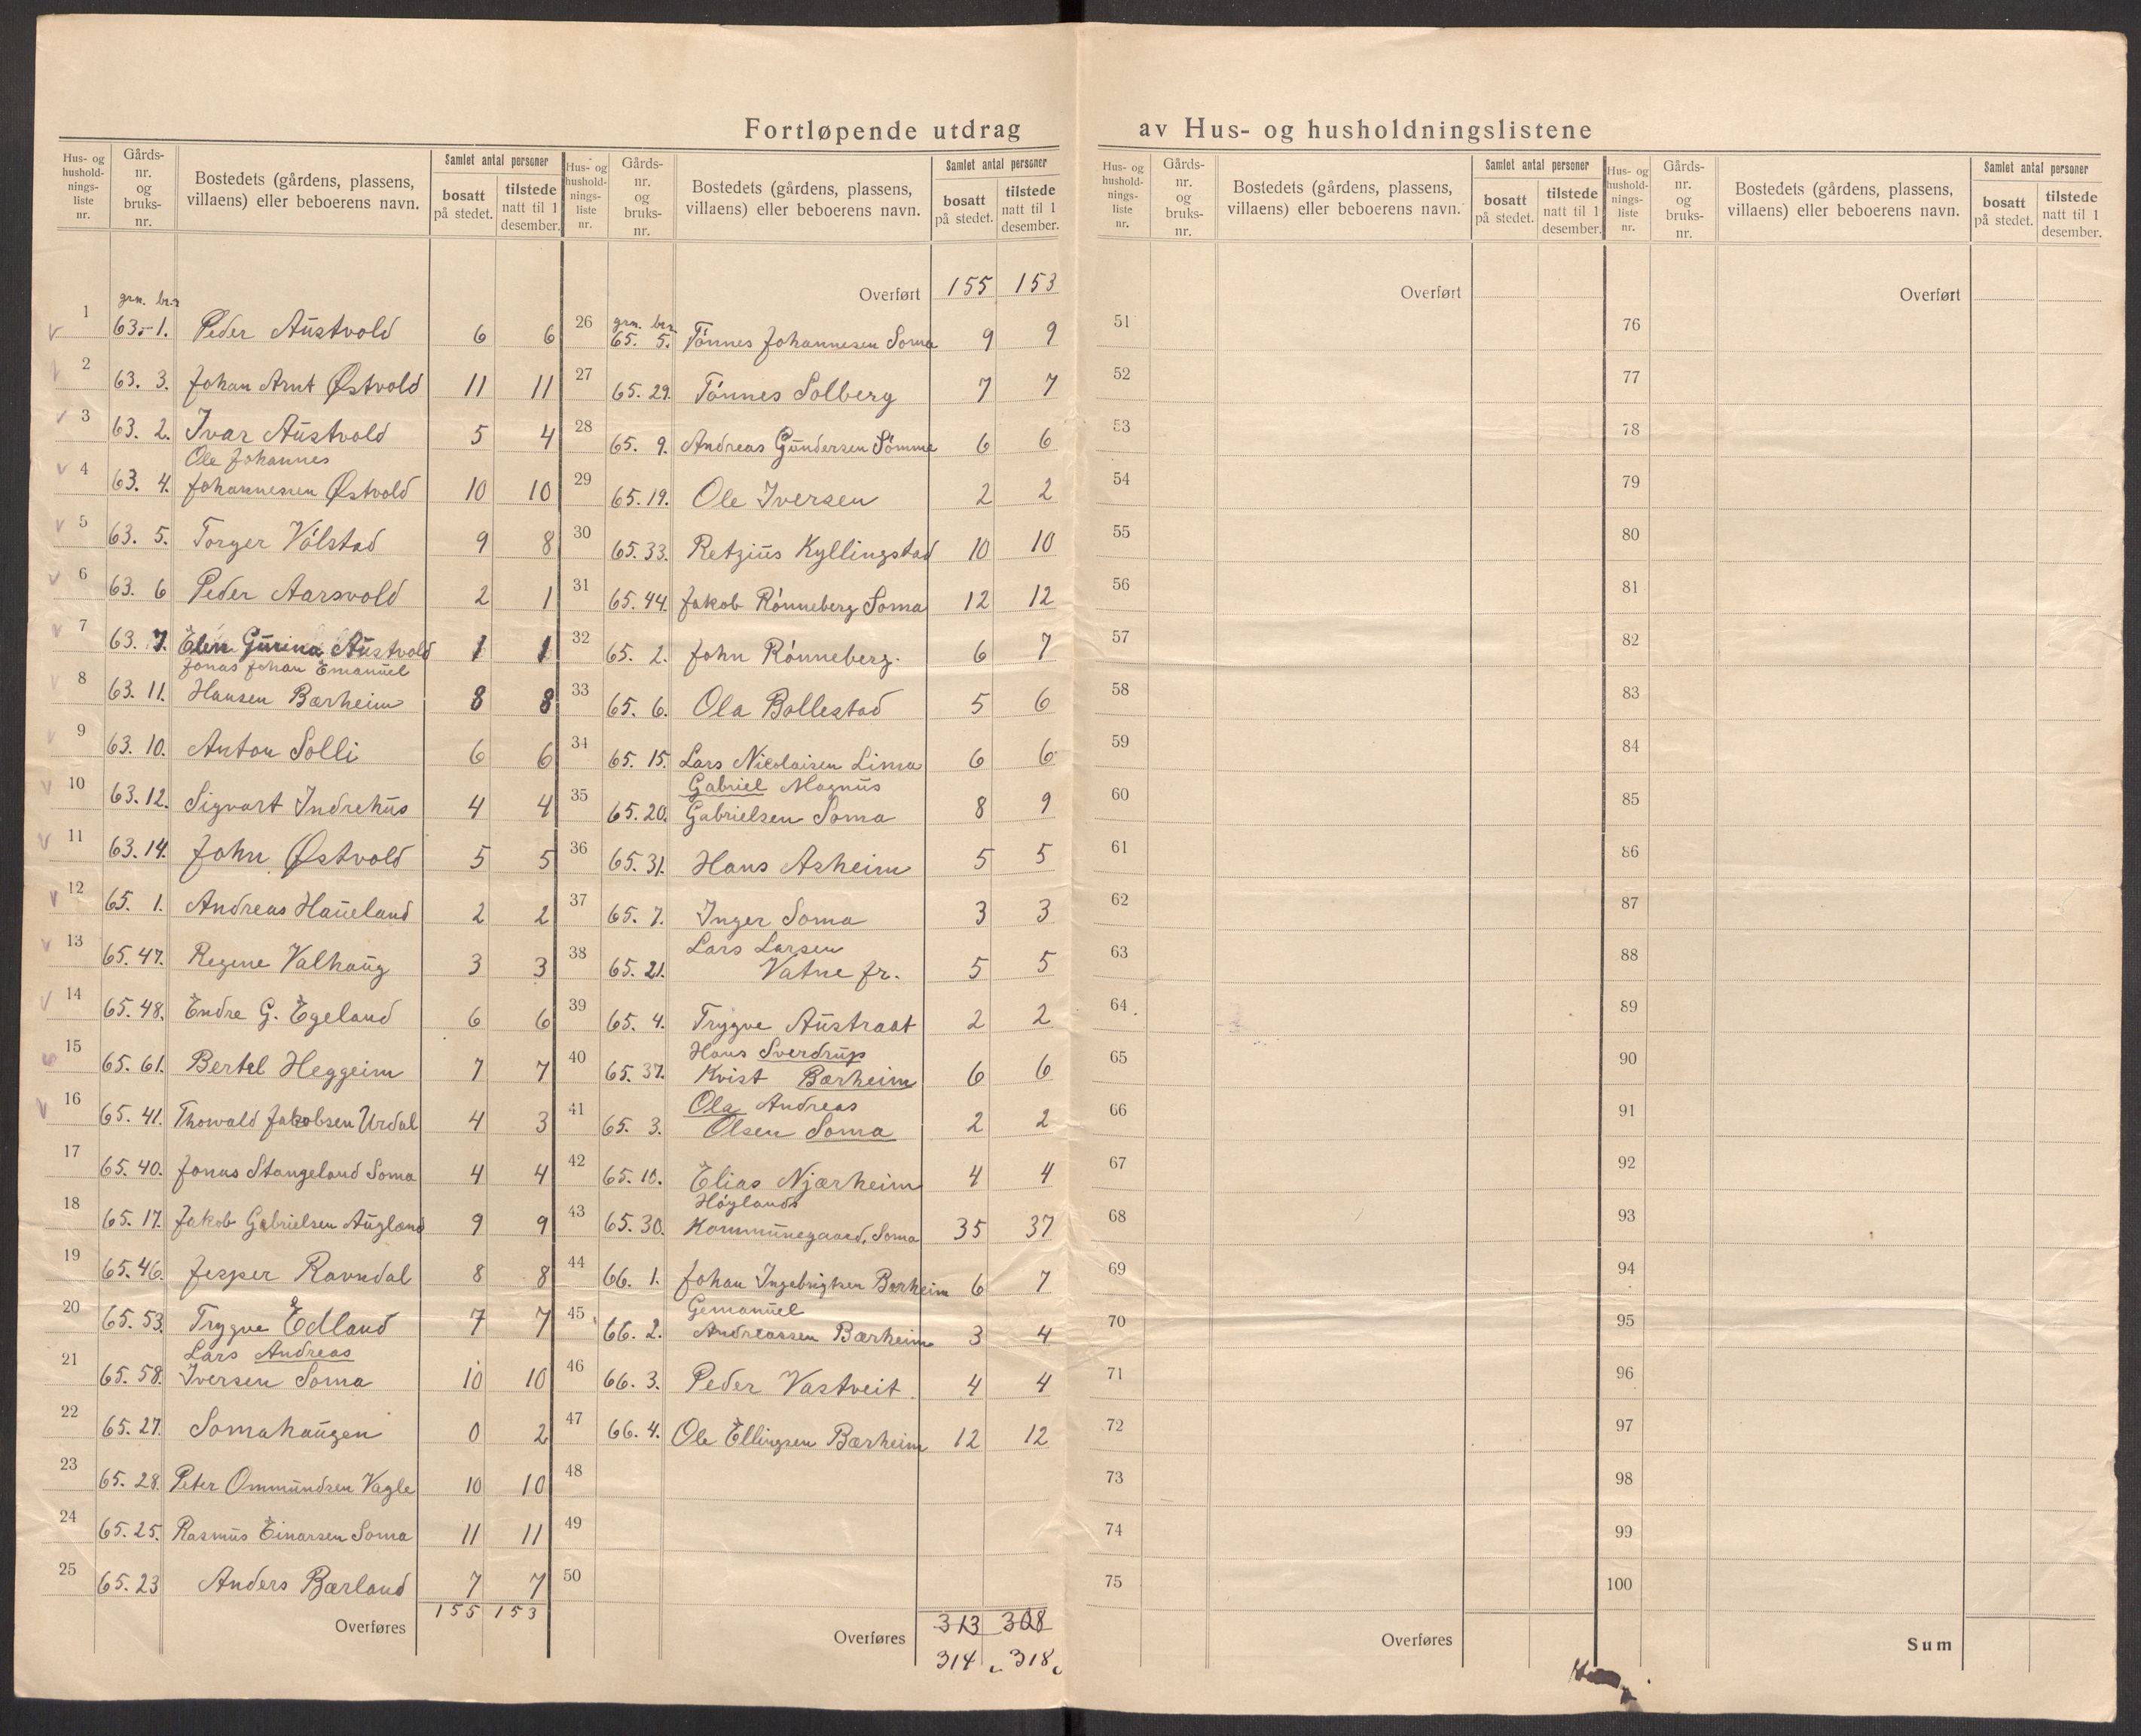 Fortløpende utdrag av Hus- og husholdningslistene
Hus- og husholdnings-liste nr. Gårds-nr. og bruks-nr. Bostedets (gårdens, plassens, villaens) eller beboerens navn. Samlet antal personer bosatt på stedet. tilstede natt til 1 desember.
grn. brn
1 63.-1. Peder Austvold 6 6
2 63. 3. Johan Arnt Østvold 11 11
3 63. 2. Ivar Austvold 5 4
Ole Johannes
4 63. 4. Johannessen Østvold 10 10
5 63. 5. Torger Vólstad 9 8
6 63. 6 Peder Aarsvold 2 1
7 63. 7. Elen Gurina Austvold 1 1
Jonas Johan Emanuel
8 63. 11. Hansen Bærheim 8 8
9 63. 10. Anton Solli 6 6
10 63. 12. Sigvart Indrehus 4 4
11 63. 14. John Østvold 5 5
12 65. 1. Andreas Haueland 2 2
13 65. 47. Regine Valhaug 3 3
14 65. 48. Endre G. Egeland 6 6
15 65. 61. Bertel Heggeim 7 7
16 65. 41. Thowald Jakobsen Urdal 4 3
17 65. 40. Jonas Stangeland Soma 4 4
18 65. 17. Jakob Gabrielsen Augland 9 9
19 65. 46. Jesper Ravndal 8 8
20 65. 53. Trygve Edland 7 7
Lars Andreas
21 65. 58. Iversen Soma 10 10
22 65. 27. Somahaugen 0 2
23 65. 28. Peter Ommundsen Vagle 10 10
24 65. 25. Rasmus Einarsen Soma 11 11
25 65. 23 Anders Bærland 7 7
Overføres 155 153
Hus- og husholdnings-liste nr. Gårds-nr. og bruks-nr. Bostedets (gårdens, plassens, villaens) eller beboerens navn. Samlet antal personer bosatt på stedet. tilstede natt til 1 desember.
Overført 155 153
grn. brn
26 65. 5. Tónnes Johannesen Soma 9 9
27 65. 29. Tónnes Solberg 7 7
28 65. 9. Andreas Gundersen Sómme 6 6
29 65. 19. Ole Iversen 2 2
30 65. 33. Retzius Kyllingstad 10 10
31 65. 44. Jakob Rónneberg Soma 12 12
32 65. 2. John Rónneberg. 6 7
33 65. 6. Ola Bollestad 5 6
34 65. 15. Lars Nicolaisen Lima 6 6
Gabriel Magnus
35 65. 20. Gabrielsen Soma 8 9
36 65. 31. Hans Asheim 5 5
37 65. 7. Inger Soma 3 3
Lars Larsen
38 65. 21. Vatne jr. 5 5
39 65. 4. Trygve Austraat 2 2
Hans Sverdrup
40 65. 37. Kvist Bærheim 6 6
Ola Andreas
41 65. 3. Olsen Soma 2 2
42 65. 10. Elias Njærheim 4 4
Høylands
43 65. 30. Kommunegaard, Soma 35 37
44 66. 1. Johan Ingebrigtsen Bærheim 6 7
Gemanuel
45 66. 2. Andreassen Bærheim 3 4
46 66. 3. Peder Vastveit 4 4
47 66. 4. Ole Ellingsen Bærheim 12 12
48
49
50
Overføres 313 308
314 318
Hus- og husholdnings-liste nr. Gårds-nr. og bruks-nr. Bostedets (gårdens, plassens, villaens) eller beboerens navn. Samlet antal personer bosatt på stedet. tilstede natt til 1 desember.
Overført
51
52
53
54
55
56
57
58
59
60
61
62
63
64
65
66
67
68
69
70
71
72
73
74
75
Overføres
Hus- og husholdnings-liste nr. Gårds-nr. og bruks-nr. Bostedets (gårdens, plassens, villaens) eller beboerens navn. Samlet antal personer bosatt på stedet. tilstede natt til 1 desember.
Overført
76
77
78
79
80
81
82
83
84
85
86
87
88
89
90
91
92
93
94
95
96
97
98
99
100
Sum